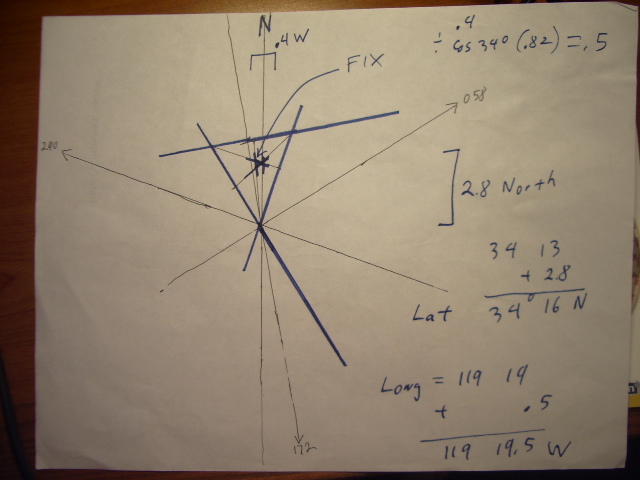 N
.4 W
FIX
.4
÷ Cos 34° (.82) = .5
058
280
2.8 North
34 13
+ 2.8
Lat 34° 16 N
Long = 119 19
+ .5
119 19.5 W
172